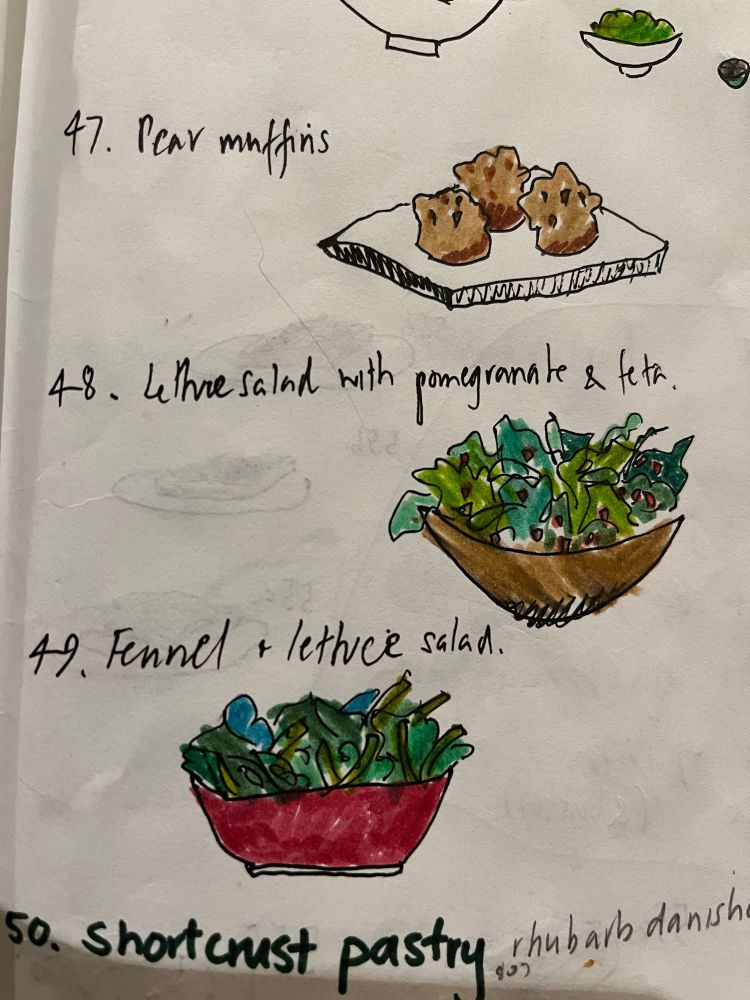 47. Pear muffins
48. Lethuce salad with pomegranate & feta.
49. Fennel + lethuce salad.
50. Shortcrust pastry rhubarb danish